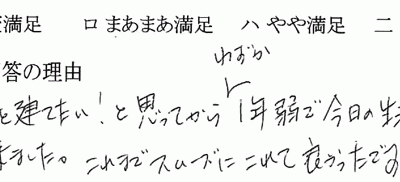 満足 ロ まあまあ満足 ハ やや満足 二
答の理由
わずか
を建てたい！と思ってから 1年弱で今日の生
ました。これまでスムーズにこれて良かったです